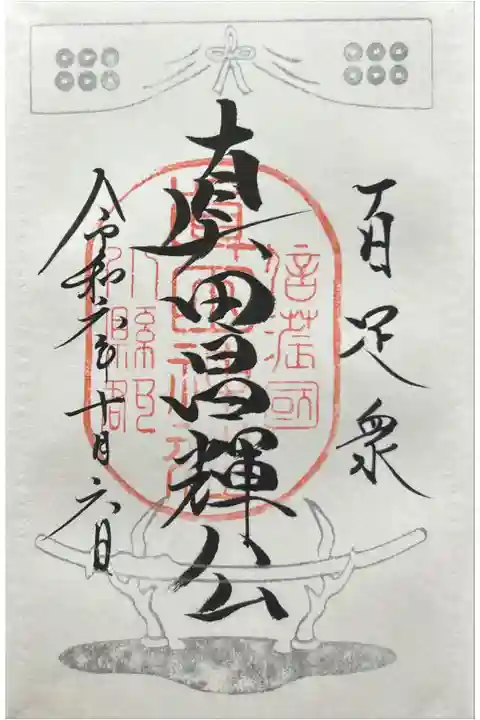 百足衆
真田昌輝公
令和六年十月六日
信濃國
小縣郡